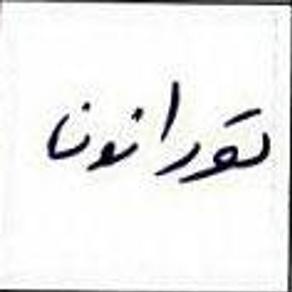 تورانونا